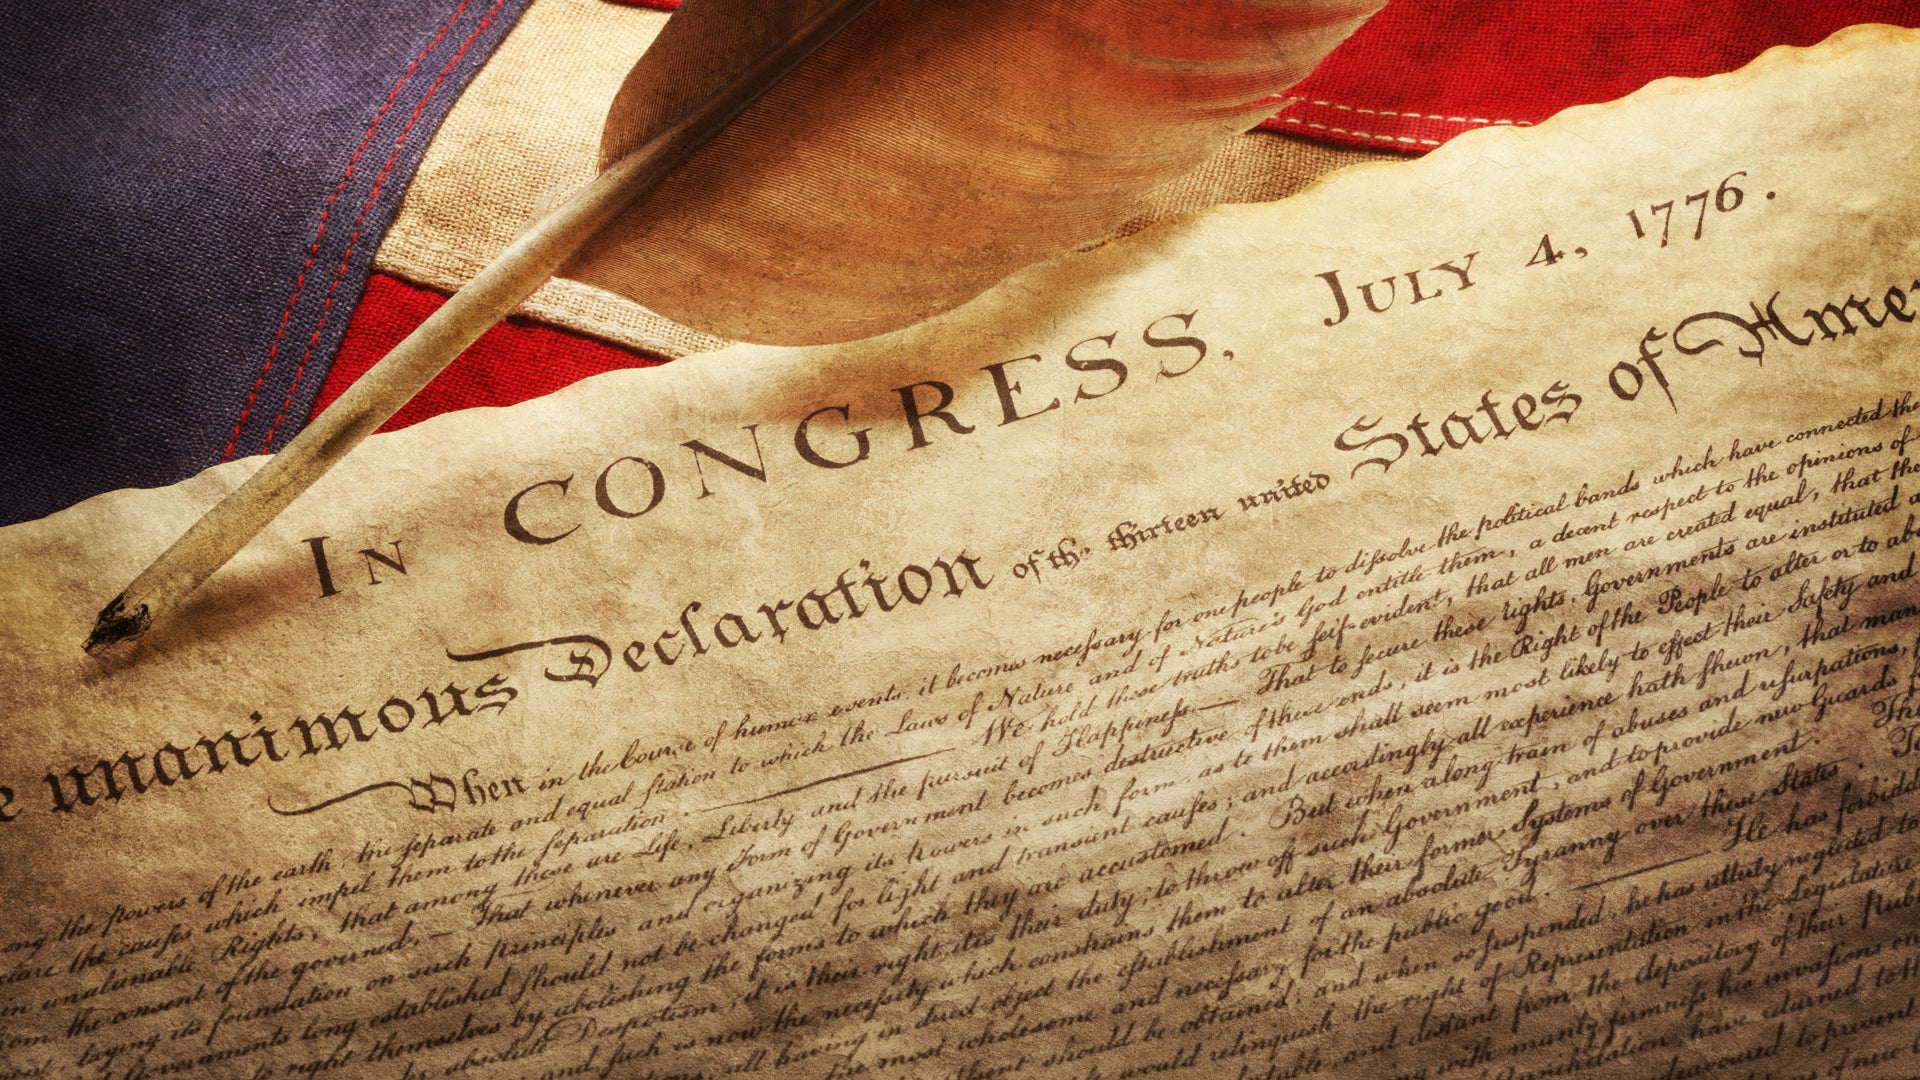 In CONGRESS, July 4, 1776.
unanimous Declaration of the thirteen united States of Ame
When in the Course of human events, it becomes necessary for one people to dissolve the political bands which have connected the
ong the powers of the earth, the separate and equal station to which the Laws of Nature and of Nature's God entitle them, a decent respect to the opinions of
clare the causes which impel them to the separation. We hold these truths to be self-evident, that all men are created equal, that the
in unalienable Rights, that among these are Life, Liberty and the pursuit of Happiness.— That to secure these rights, Governments are instituted a
rom the consent of the governed, — That whenever any Form of Government becomes destructive of these ends, it is the Right of the People to alter or to ab
laying its foundation on such principles and organizing its powers in such form, as to them shall seem most likely to effect their Safety and
Governments long established should not be changed for light and transient causes; and accordingly all experience hath shewn, that man
to right themselves by abolishing the forms to which they are accustomed. But when a long train of abuses and usurpations,
absolute Despotism, it is their right, it is their duty, to throw off such Government, and to provide new Guards f
and such is now the necessity which constrains them to alter their former Systems of Government. Th
all having in direct object the establishment of an absolute Tyranny over these States. T
most wholesome and necessary for the public good. He has forbidd
should be obtained; and when so suspended, he has utterly neglected to
would relinquish the right of Representation in the Legislature
and distant from the depository of their Pub
with manly firmness his invasions on
have returned to th
to prevent
of new